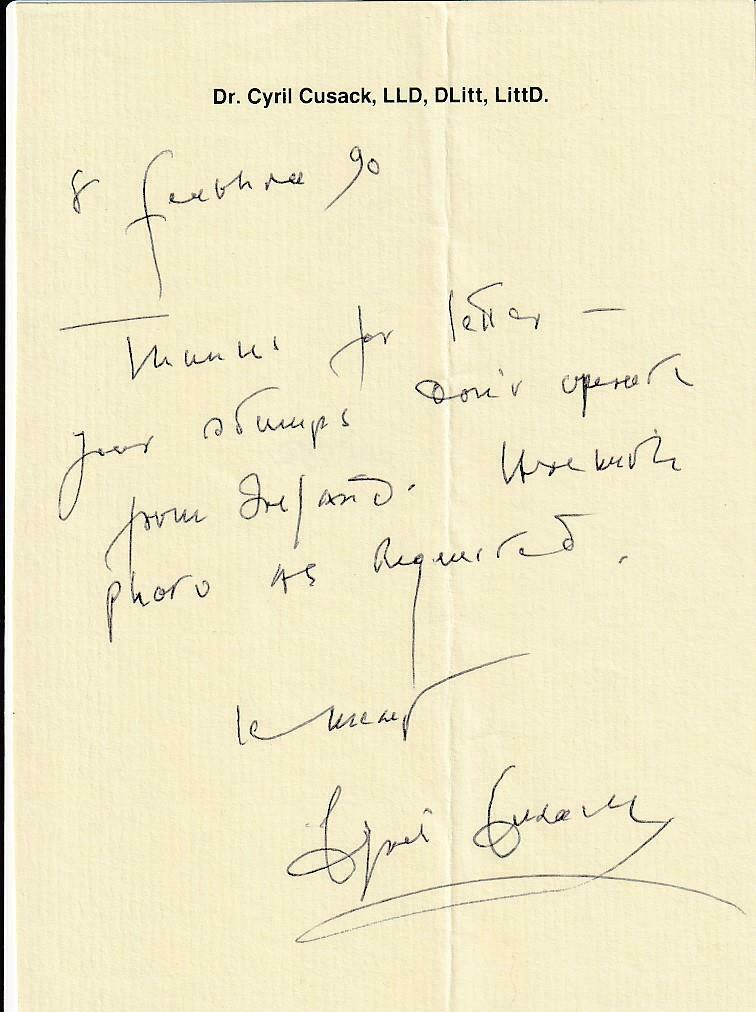 Dr. Cyril Cusack, LLD, DLitt, LittD.
8 feabhra 90
Thanks for letter —
your stamps don't operate
from Ireland. Herewith
photo as requested.
le meas
Cyril Cusack